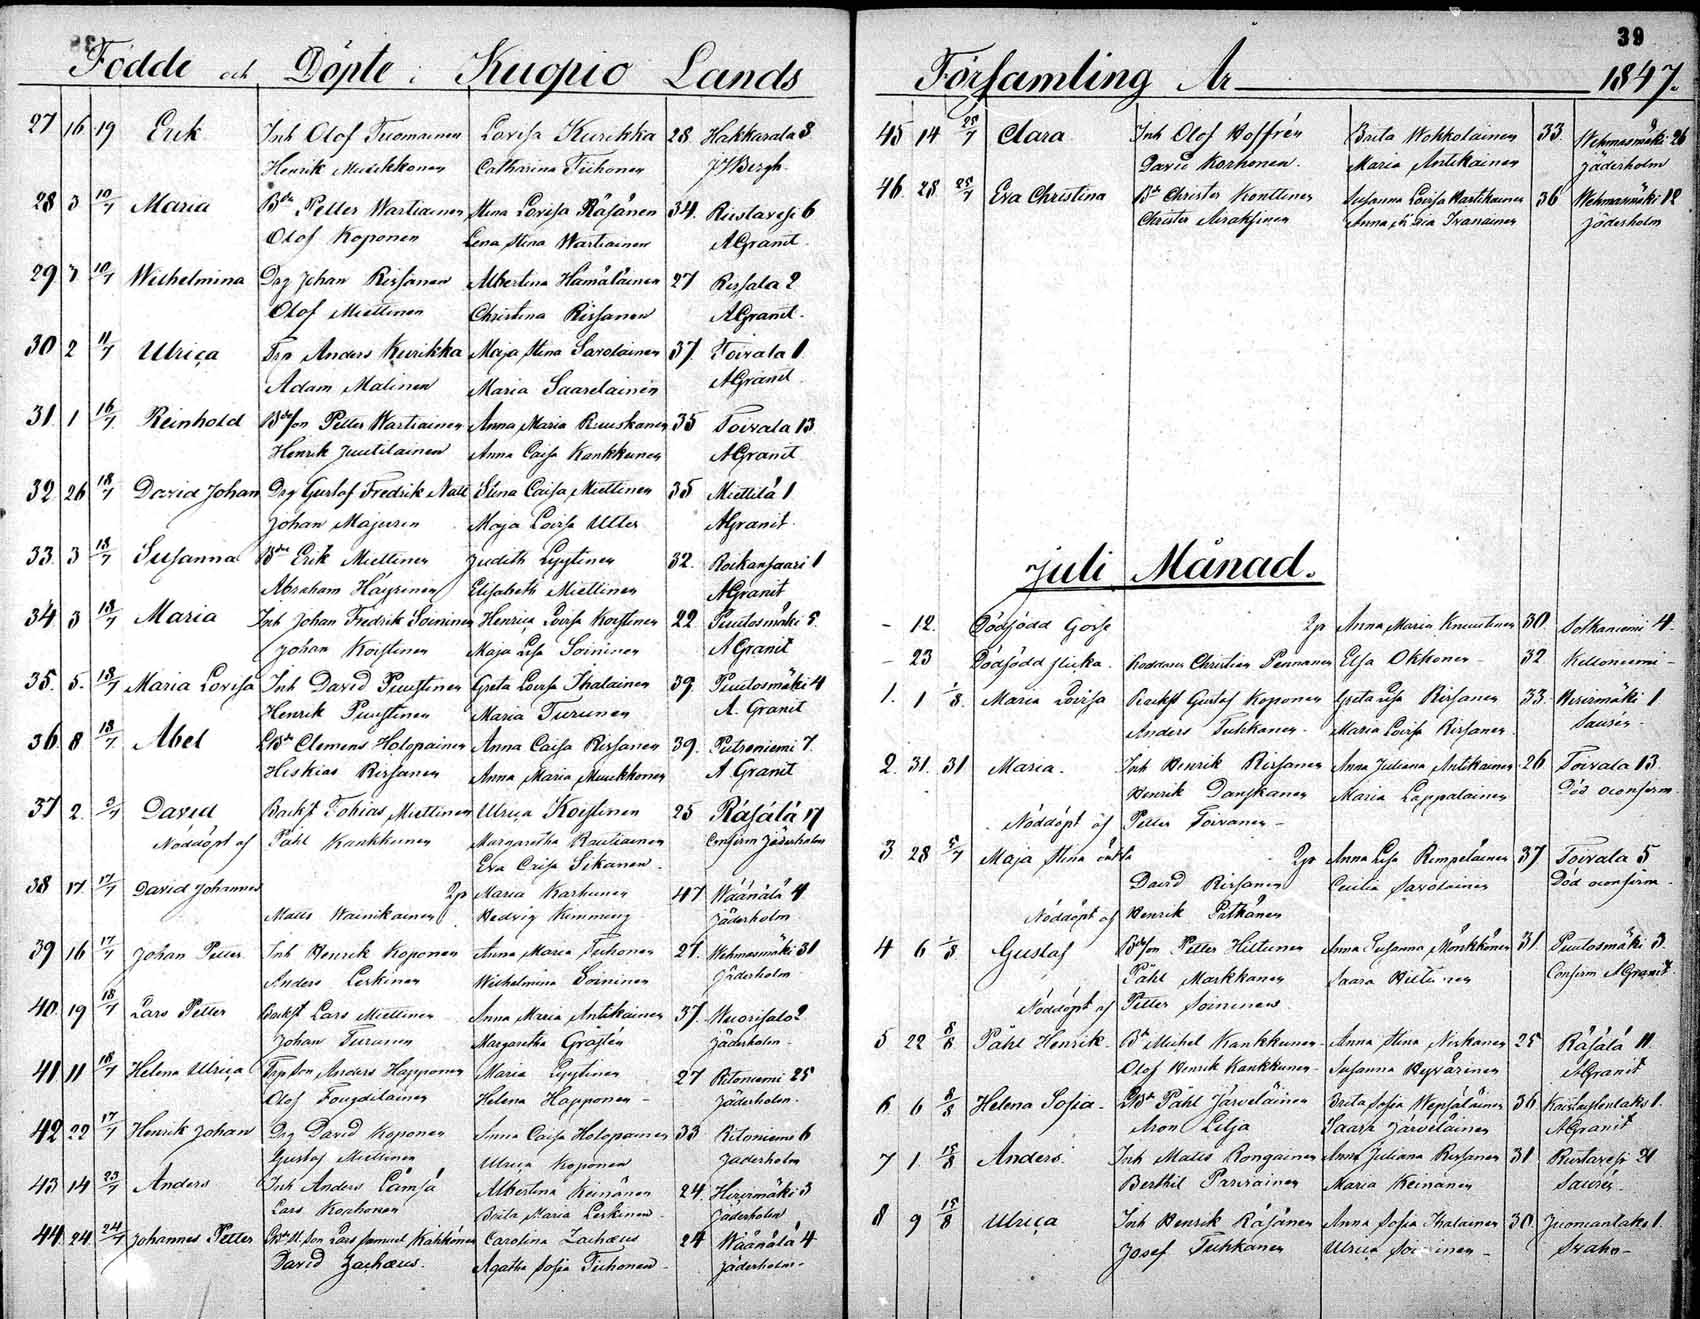 39
Födde och Döpte i Kuopio Lands
27 16 19 Erik Inh Olof Tuomainen Lovisa Kurikka 28 Hakkarala 3
Henrik Muikkonen Catharina Tiihonen
28 3 10/7 Maria Bde Petter Wartiainen Stina Lovisa Räsänen 34. Riistavesi 6
Olof Koponen Lena Stina Wartiainen AGranit.
29 7 10/7 Wilhelmina Drg Johan Rissanen Albertina Hämäläinen 27 Rissala 2
Olof Miettinen Christina Rissanen AGranit.
30 2 11/7 Ulrica Anders Kurikka Maja Stina Savolainen 37 Toivala 1
Adam Malinen Maria Saarelainen AGranit
31 1 16/7 Reinhold Bdeson Petter Wartiainen Anna Maria Ruuskanen 35 Toivala 13
Henrik Juutilainen Anna Caisa Kankkunen AGranit
32 26 18/7 David Johan Drg Gustaf Fredrik Nall Stina Caisa Miettinen 35 Miettilä 1
Johan Majurin Maja Loisa Utter AGranit.
33. 3 18/7 Susanna Bde Erik Miettinen Judith Lyytinen 32. 1
Abraham Häyrinen Elisabeth Miettinen AGranit
34 3 18/7 Maria Inh Johan Fredrik Soininen Henrica Loisa Koistinen 22 Puutosmäki 5.
Johan Koistinen Maja Lisa Soininen A Granit
35. 5. 18/7 Maria Lovisa Inh David Puustinen Greta Loisa Ihalainen 39. Puutosmäki 4
Henrik Puustinen Maria Turunen A. Granit
36. 8 18/7 Abel LBde Clemens Holopainen Anna Caisa Rissanen 39. Putroniemi 7.
Hiskias Rissanen Anna Maria Muikkonen A Granit
37 2. David Backst Tobias Miettinen Ulrica Koistinen 25 Räsälä 17
Nöddöpt af Påhl Kankkunen Margaretha Rautiainen Confirm Jäderholm
Eva Caisa Sikanen.
38 17 17/7 David Johannes Maria Karhunen 47 Wäänälä 4
Matts Wainikainen Hedvig Kemming Jäderholm
39 16 17/7 Johan Petter Inh Henrik Koponen Anna Maria Tiihonen 21. Wehmasmäki 31
Anders Leskinen Wilhelmina Soininen Jäderholm
40. 19 18/7 Lars Petter Backst Lars Miettinen Anna Maria Antikainen 37. Wuorisalo 2
Johan Turunen Margaretha Gråsten Jäderholm
41 11 18/7 Helena Ulrica Anders Happonen Maria Lyytinen 27 Ritoniemi 25
Olof Helena Happonen Jäderholm.
42 22 17/7 Henrik Johan Drg David Koponen Anna Caisa Holopainen 33 Ritoniemi 6
Gustaf Miettinen Ulrica Koponen Jäderholm
43 14 23/7 Anders Inh Anders Lämsä Albertina Keinänen 24. Hirvimäki 3
Lars Korhonen Brita Maria Leskinen Jäderholm
44. 24 24/7 Johannes Petter Lars Samuel Kähkönen Carolina Zachæus 24 Wäänälä 4
David Zachæus. Agatha Sofia Tiihonen Jäderholm
39
Församling År 1847.
45 14 25/7 Clara Inh Olof Hoffrén Brita Wokkolainen 33. Wehmasmäki 26
David Korhonen. Maria Antikainen Jäderholm
46. 28 25/7 Eva Christina Bde Christer Konttinen Susanna Loisa Wartikainen 36 Wehmasmäki 12
Christer Airaksinen Anna Maria Jäderholm
Juli Månad.
– 12. Dödfödd Gosse Anna Maria Knuutinen 30. Sotkaniemi 4.
– 23 Dödfödd flicka. Christian Pennanen Elsa Okkonen 32 Kelloniemi
1. 1 1/8. Maria Loisa Backst Gustaf Koponen Greta Lisa Rissanen 33. Hirvimäki 1
Anders Tuhkanen. Maria Loisa Rissanen Saurén.
2. 31. 31 Maria. Inh Henrik Rissanen Anna Juliana Antikainen 26 Toivala 13
Henrik Danskanen Maria Lappalainen Död oconfirm.
Nöddöpt af Petter Toivanen
3 28 5/7 Maja Stina oäkta Anna Lisa Rimpeläinen 37 Toivala 5
David Rissanen Cecilia Savolainen Död oconfirm.
Nöddöpt af Henrik Pitkänen
4 6 1/8 Gustaf Bdeson Petter Hiltunen Anna Susanna Mönkkönen 31. Puutosmäki 3.
Påhl Markkanen Saara Hiltunen Confirm AGranit
Nöddöpt af Petter Soininen
5 22 8/8 Påhl Henrik Bde Michel Kankkunen Anna Stina Noskanen 25 Räsälä 11
Olof Henrik Kankkunen Susanna Hyvärinen AGranit
6 6 8/8 Helena Sofia LBde Påhl Järveläinen Brita Sofia Wepsäläinen 36 1.
Aron Lilja Saara Järveläinen AGranit
7 1 15/8 Anders Inh Matts Rongainen Anna Juliana Rissanen 31 Riistavesi 21
Berthil Parviainen Maria Keinänen Saurén.
8 9 15/8 Ulrica Inh Henrik Räsänen Anna Sofia Ihalainen 30. Juonionlaks 1.
Josef Tuhkanen Ulrica Soininen